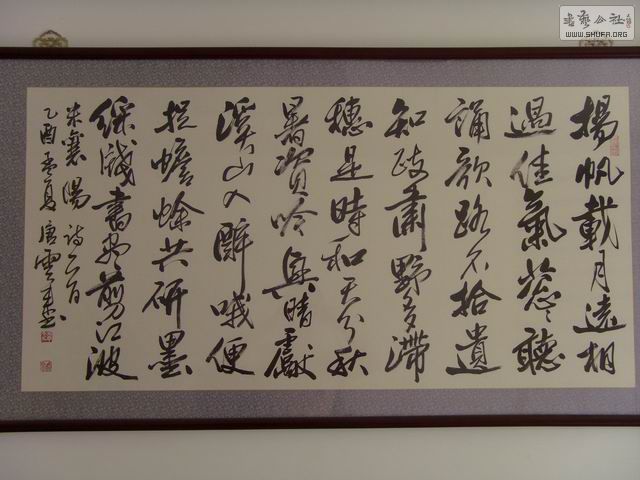 揚帆載月遠相
過佳氣葱々聽
誦歌路不拾遺
知政肅野多滯
穗是時和天分秋
暑資吟興晴獻
溪山入醉哦便
捉蟾蜍共研墨
綵牋書盡剪江波
米襄陽詩一首
乙酉孟夏唐雲來書
書藝公社
WWW.SHUFA.ORG